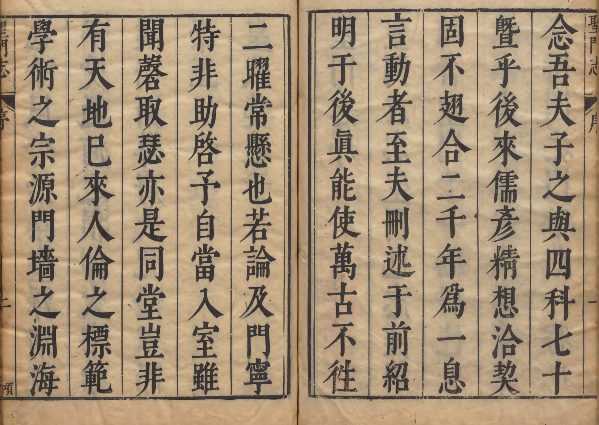 聖門志
序
念吾夫子之與四科七十
曁乎後來儒彦精想洽契
固不翅合二千年爲一息
言動者至夫刪述于前紹
明于後眞能使萬古不徃
二曜常懸也若論及門寧
特非助啓予自當入室雖
聞磬取瑟亦是同堂豈非
有天地巳來人倫之標範
學術之宗源門墻之淵海
聖門志
序